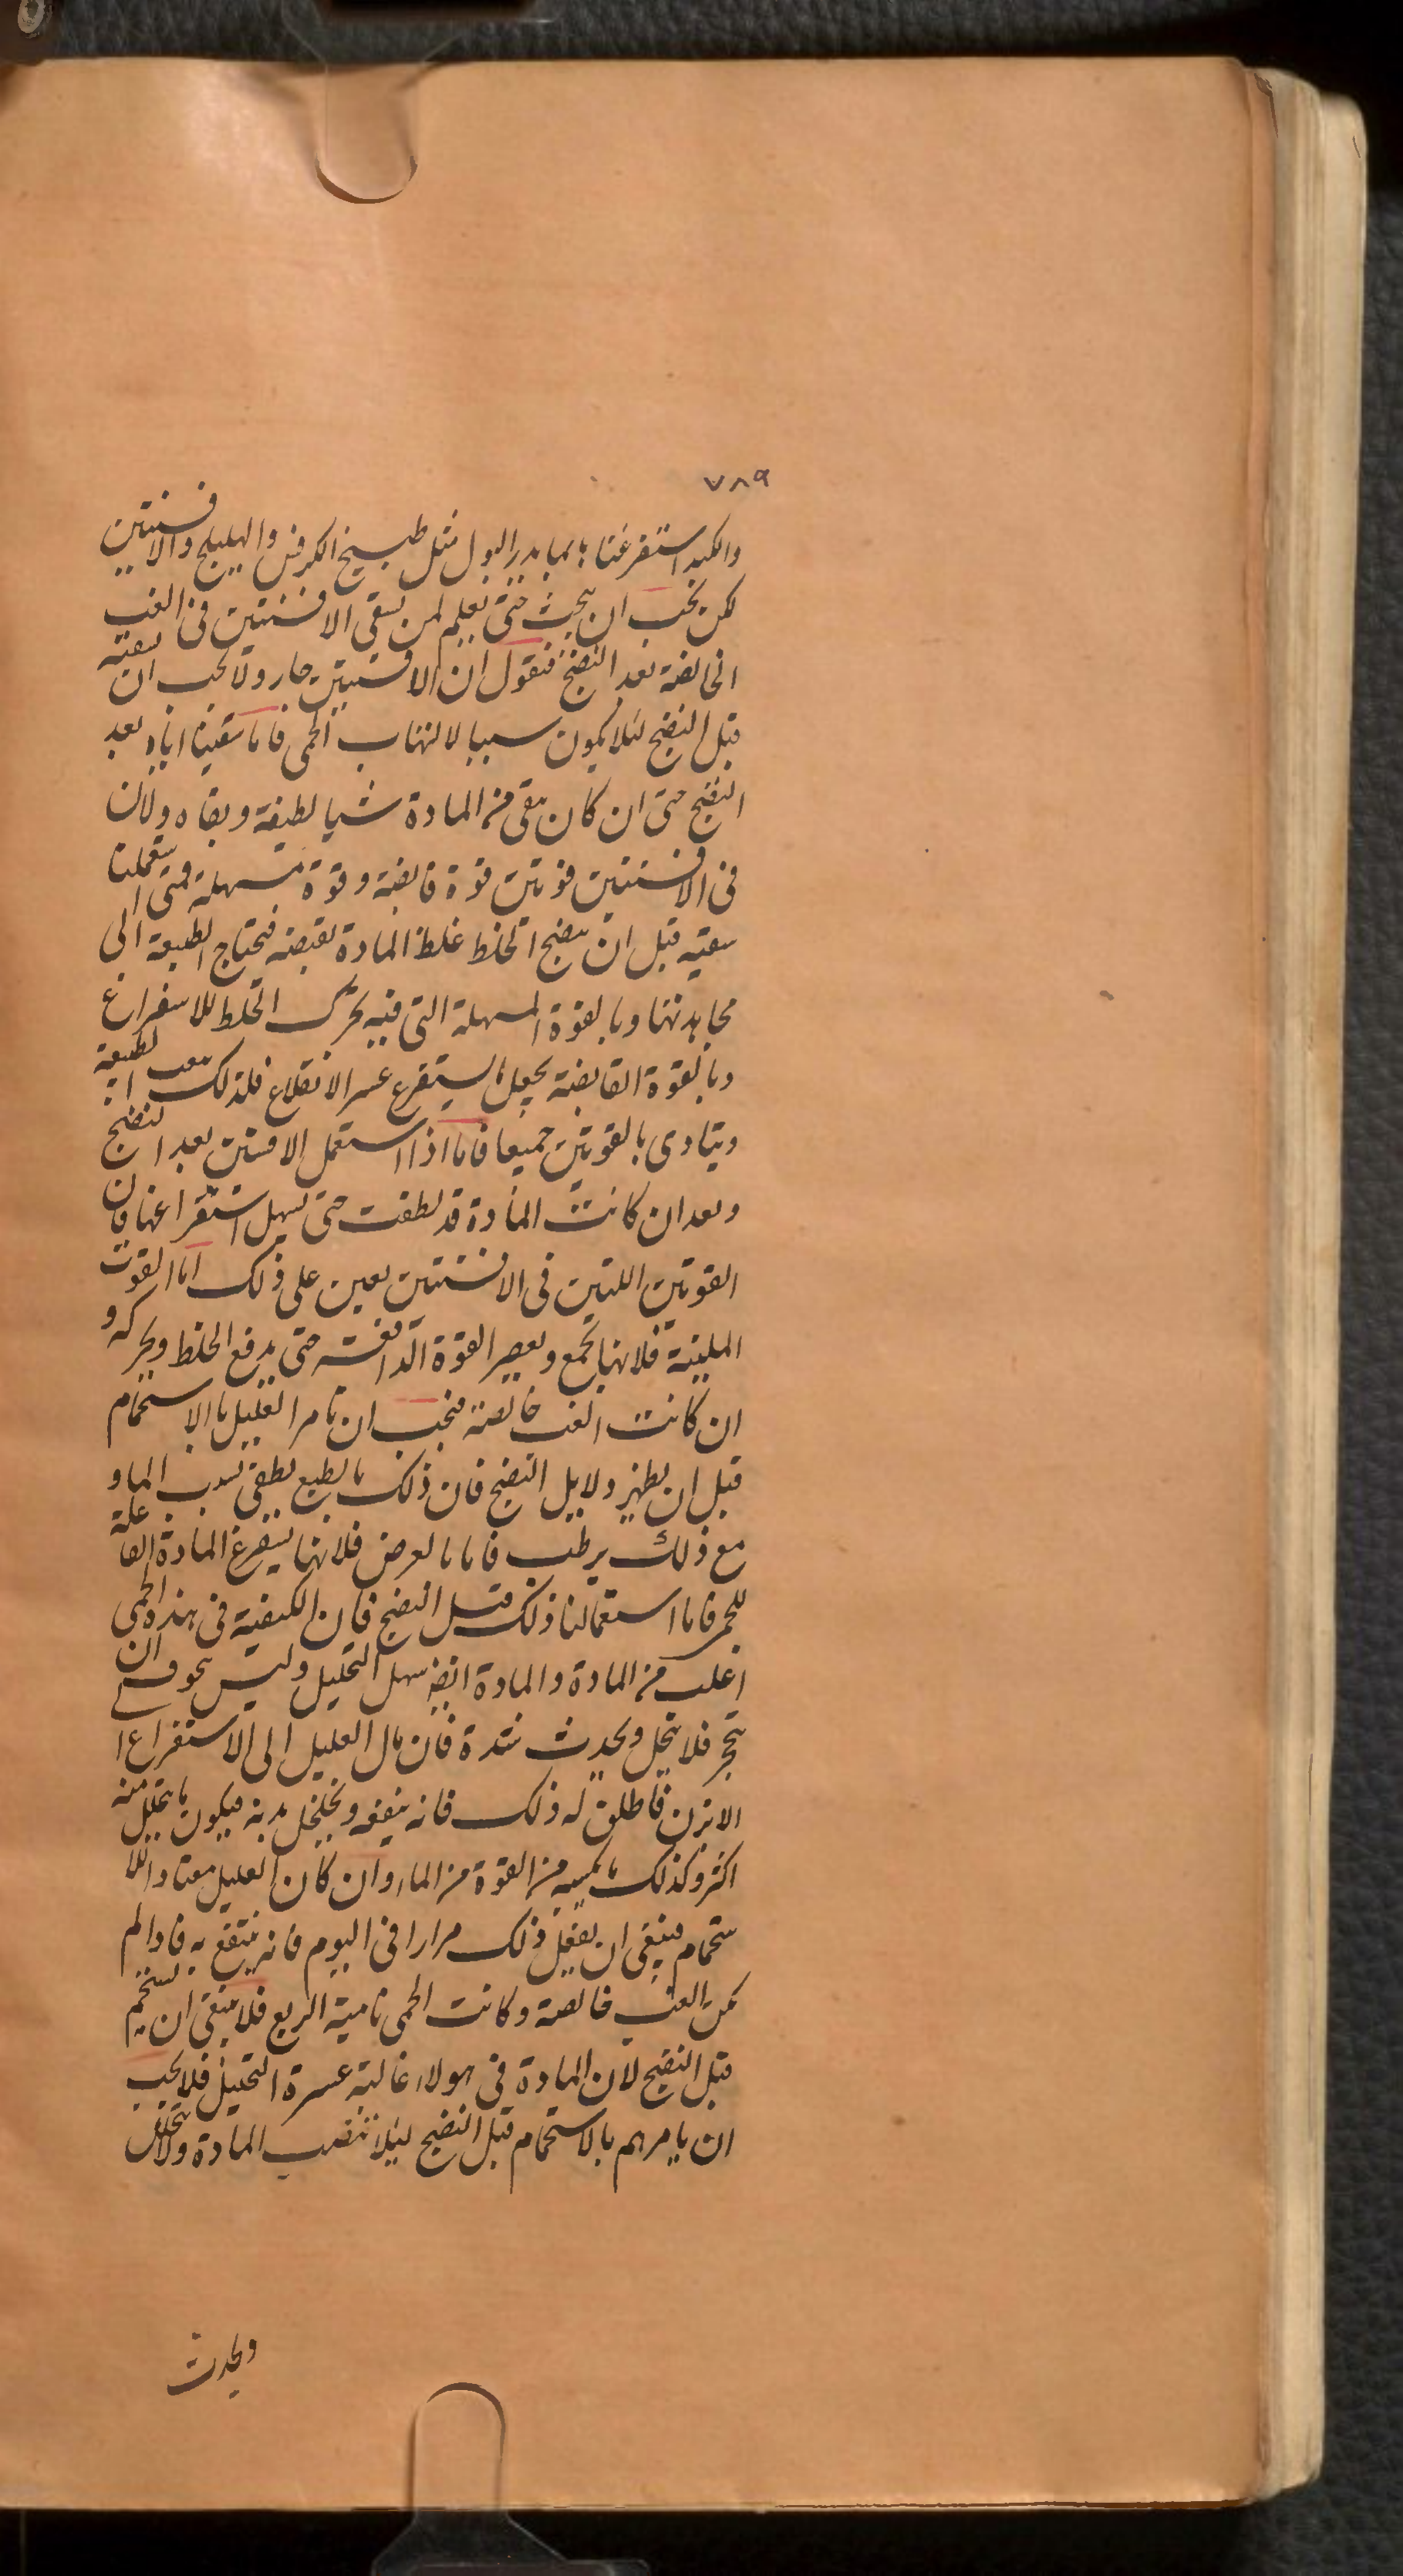 ٧٨٩
والكبد استفرغنا بما يدر البول مثل طبيخ الكرفس والهليلج والافسنتين
لكن يجب ان نبحث حتى نعلم لمن نسقى الافسنتين فى الغب
الخالصة بعد النضج فنقول ان الافسنتين حار ولا يجب ان نسقيه
قبل النضج لئلا يكون سببا لالتهاب الحمى فاما سقينا اياه بعد
النضج حتى ان كان بقى من المادة شيا لطيفة وبقاه ولان
فى الافسنتين قوتين قوة قابضة وقوة مسهلة فمتى استعملنا
سقيه قبل ان ينضج الخلط غلظ المادة بقبضه فتحتاج الطبيعة الى
مجاهدتها وبالقوة المسهلة التى فيه يحرك الخلط للاستفراغ
وبالقوة القابضة يجعل ما يستفرغ عسر الانقلاع فلذلك تتعب الطبيعة
ويتاذى بالقوتين جميعا فاما اذا استعمل الافسنتين بعد النضج
وبعد ان كانت المادة قد لطفت حتى يسهل استفراغها فان
القوتين اللتين فى الافسنتين يعين على ذلك اما القوت
الملينة فلانها تجمع وتعصر القوة الدافعة حتى يدفع الخلط ويحركه و
ان كانت الغب خالصة فيجب ان تامر العليل بالاستحمام
قبل ان يظهر دلايل النضج فان ذلك بالطبع يطفى بسبب الماء و
مع ذلك يرطب فاما بالعرض فلانها يستفرغ المادة الفاعلة
للحمى فاما استعمالنا ذلك قبل النضج فان الكيفية فى هذه الحمى
اغلب من المادة والمادة ايضا سهل التحليل وليس يخوف ان
يتحجر فلا يتحل ويحدث شدة فان مال العليل الى الاستفراغ
الابزن فاطلق له ذلك فانه ينفعه ويخلخل بدنه فيكون ما يتحلل منه
اكثر وكذلك ما يكسبه من القوة من الماء وان كان العليل معتادا للا
ستحمام فينبغى ان يفعل ذلك مرارا فى اليوم فانه ينتفع به فاذا لم
تكن الغب خالصة وكانت الحمى نامية الربع فلا ينبغى ان يستحم
قبل النضج لان المادة فى هولاء غالبة عسرة التحليل فلا يجب
ان يامرهم بالاستحمام قبل النضج لئلا تنصب المادة ولا تتحلل
ويحدث